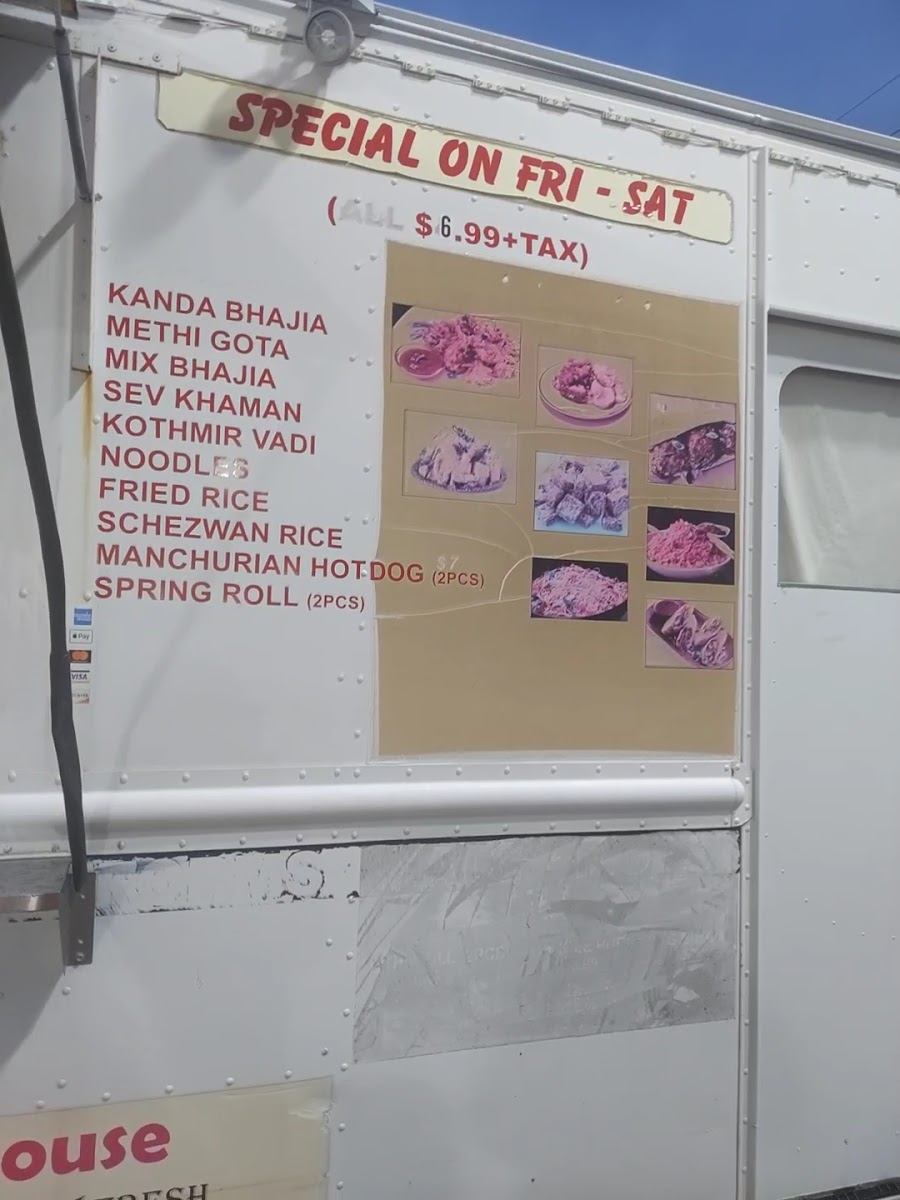 SPECIAL ON FRI - SAT
(ALL $6.99+TAX)
KANDA BHAJIA
METHI GOTA
MIX BHAJIA
SEV KHAMAN
KOTHMIR VADI
NOODLES
FRIED RICE
SCHEZWAN RICE
MANCHURIAN HOTDOG (2PCS)
$7
SPRING ROLL (2PCS)
Pay
VISA
ouse
FRESH